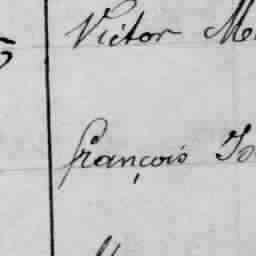 Victor M
françois Jo